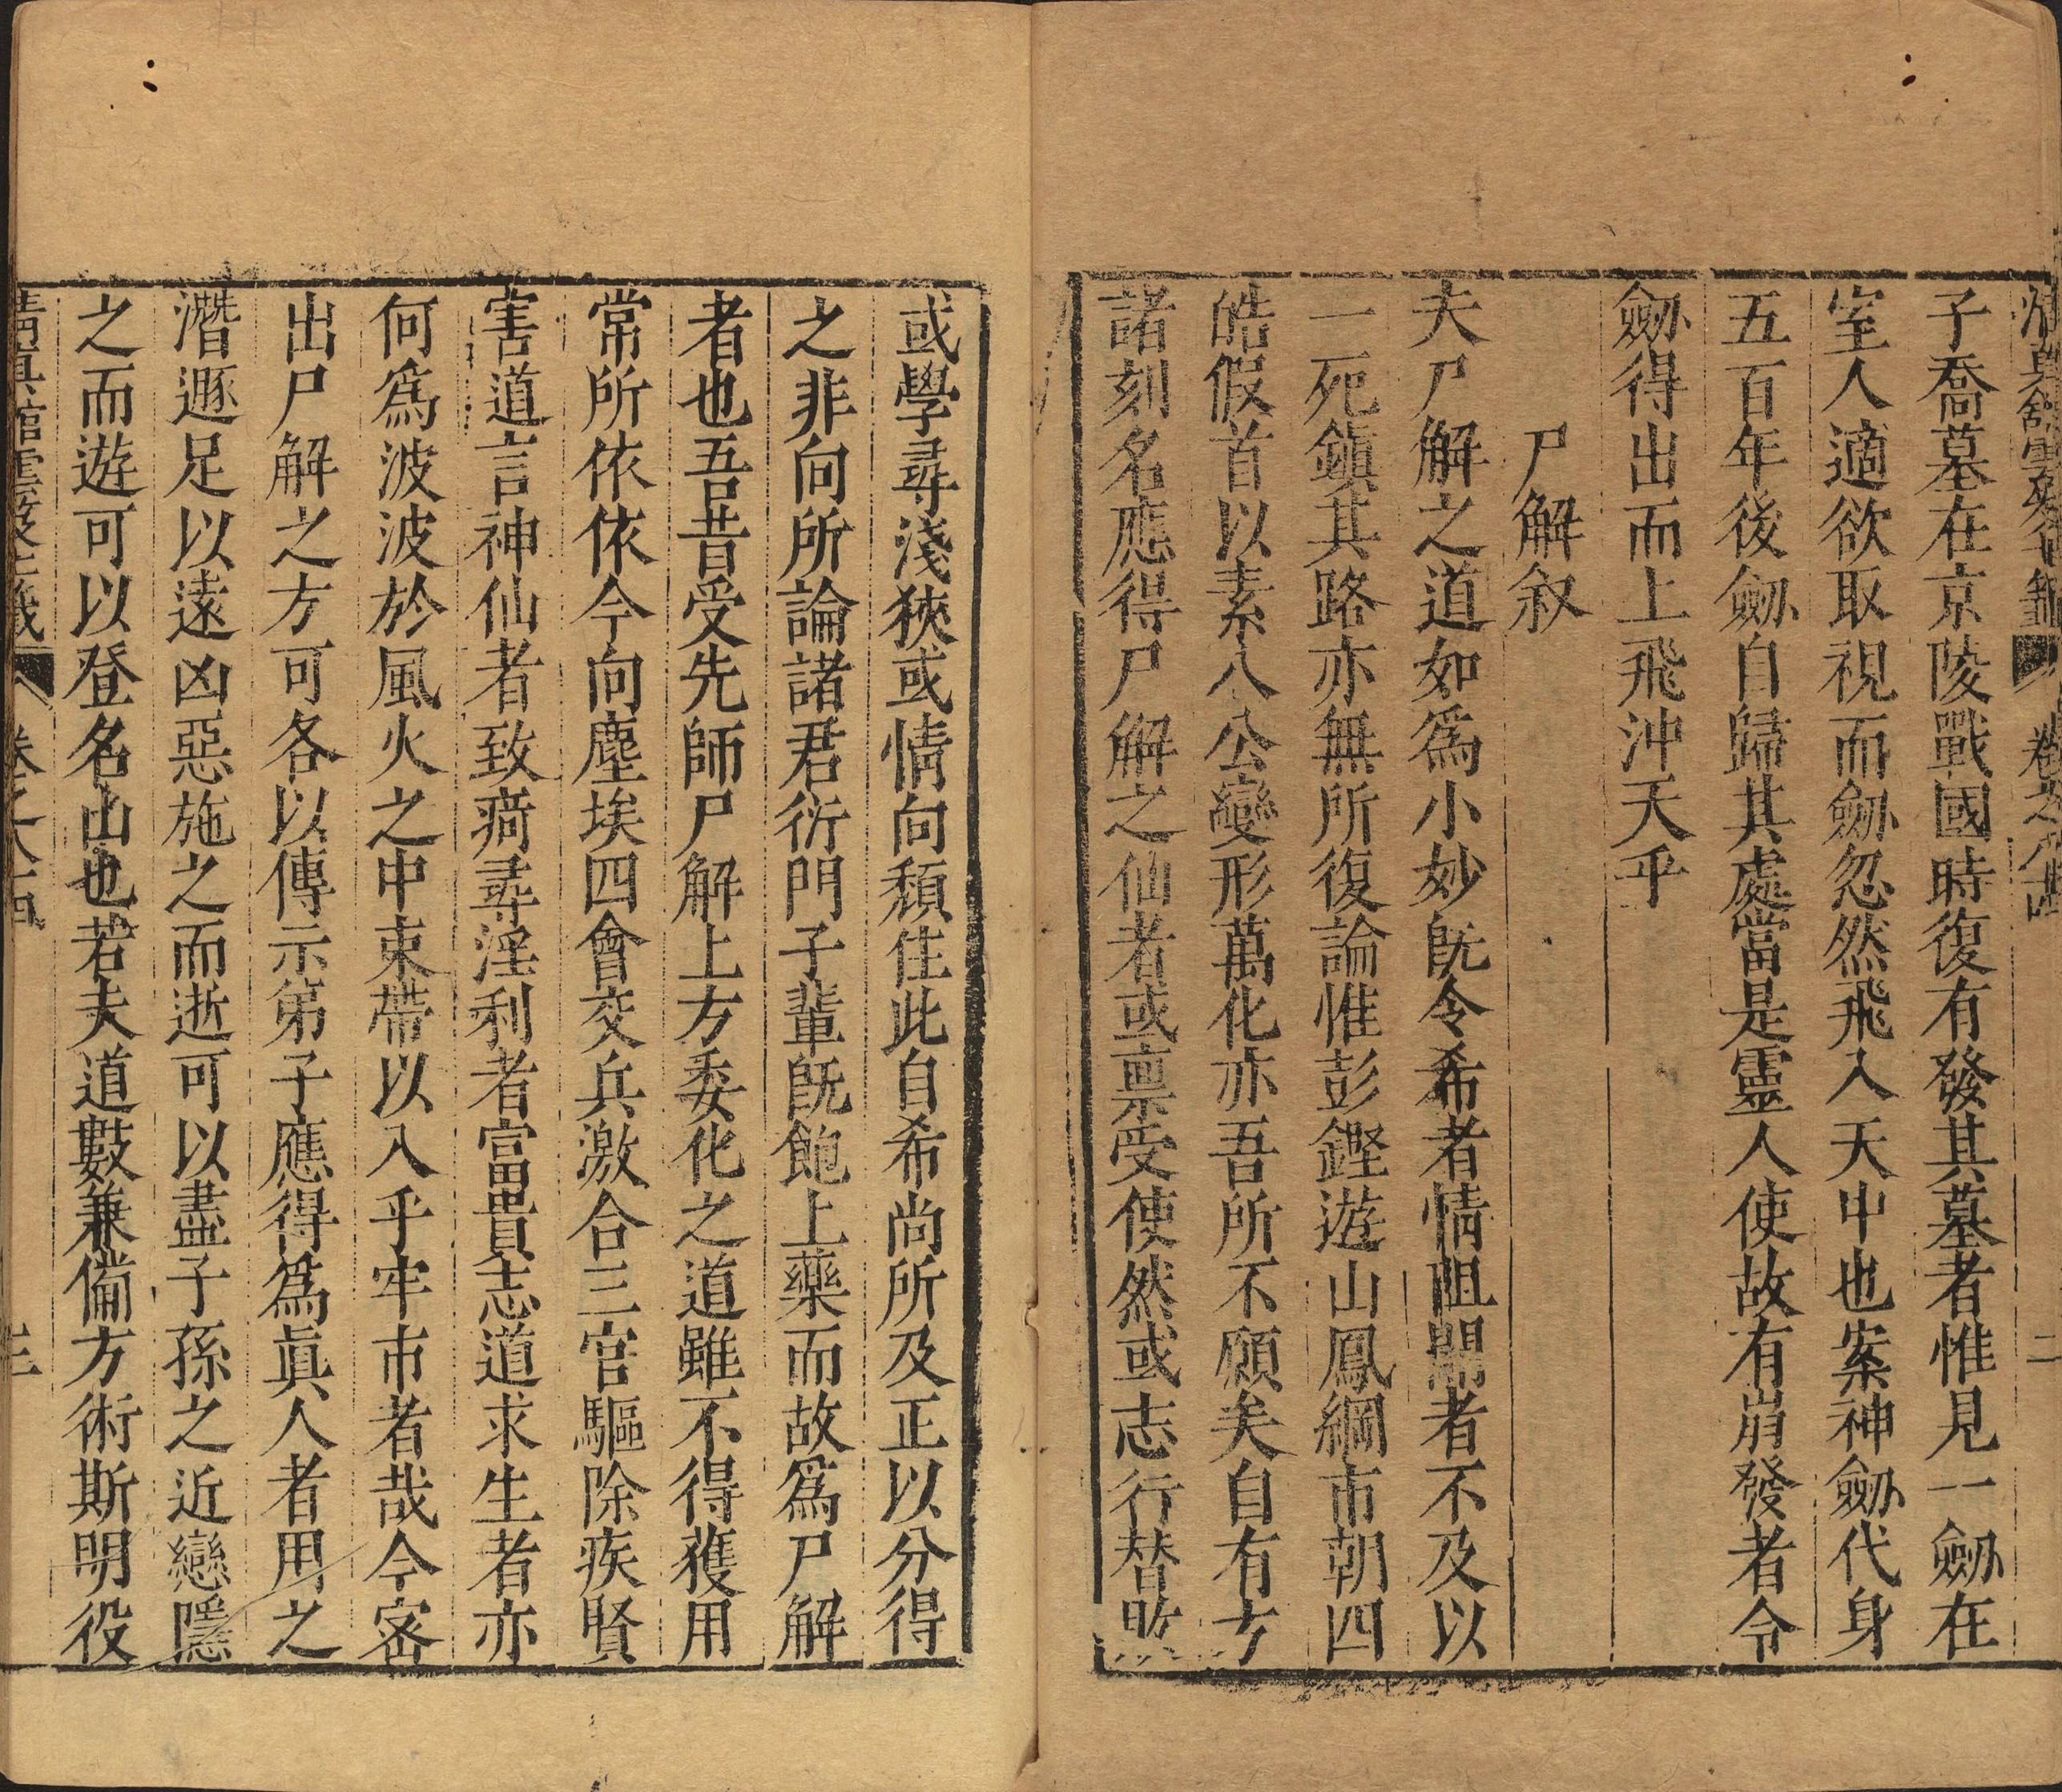 清眞館雲笈七籤 卷之八十四 二
子喬墓在京陵戰國時復有發其墓者惟見一劒在
室人適欲取視而劒忽然飛入天中也案神劒代身
五百年後劒自歸其處當是靈人使故有崩發者令
劒得出而上飛沖天乎
尸解叙
夫尸解之道如爲小妙旣令希者情阻閙者不及以
一死鎭其路亦無所復論惟彭鏗遊山鳳綱市朝四
皓假首以素八公變形萬化亦吾所不願矣自有方
諸刻名應得尸解之仙者或禀受使然或志行替敗
或學尋淺狹或情向頹住此自希尚所及正以分得
之非向所論諸君衍門子輩旣飽上藥而故爲尸解
者也吾昔受先師尸解上方委化之道雖不得獲用
常所依依今向塵埃四會交兵激合三官驅除疾賢
害道言神仙者致痾尋淫利者富貴志道求生者亦
何爲波波於風火之中束帶以入乎牢市者哉今密
出尸解之方可各以傳示第子應得爲眞人者用之
潛遯足以遠凶惡施之而逝可以盡子孫之近戀隱
之而遊可以登名山也若夫道數兼備方術斯明役
清眞館雲笈七籤 卷之八十四 三